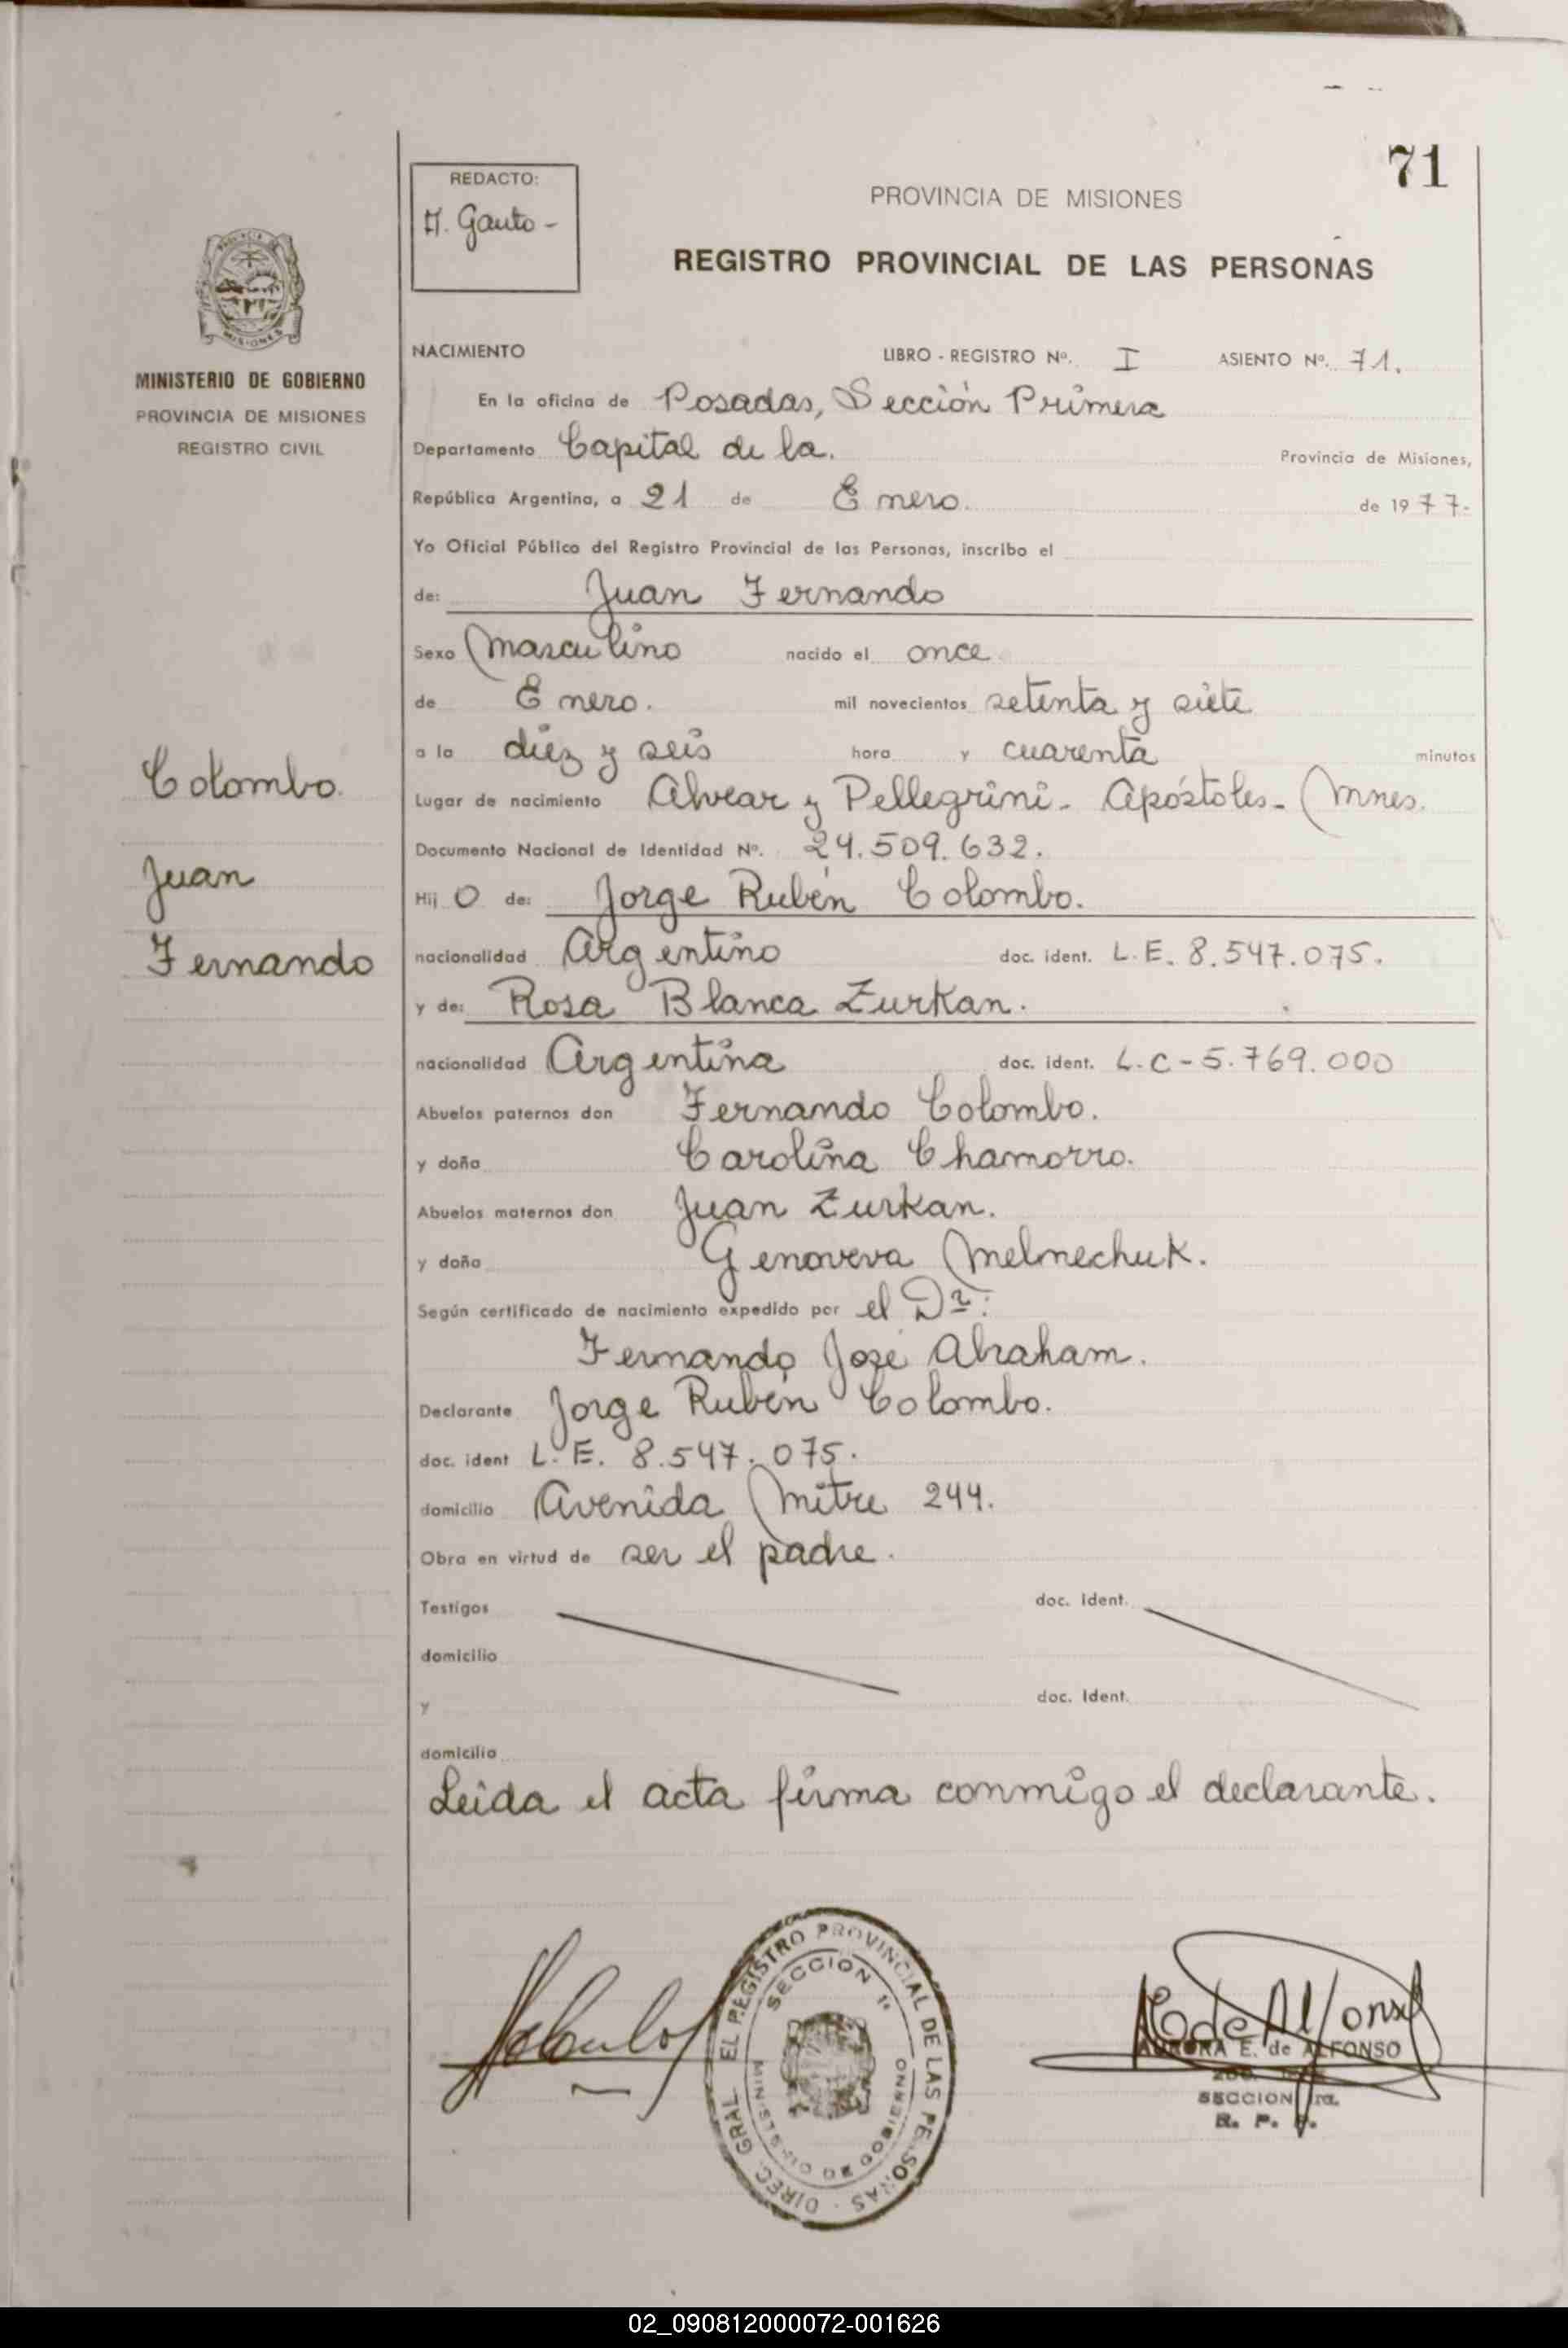 71
REDACTO:
A. Gauto -
PROVINCIA DE MISIONES
REGISTRO PROVINCIAL DE LAS PERSONAS
MISIONES
MINISTERIO DE GOBIERNO
PROVINCIA DE MISIONES
REGISTRO CIVIL
NACIMIENTO LIBRO - REGISTRO Nº. I ASIENTO Nº. 71.
En la oficina de Posadas, Sección Primera
Departamento Capital de la. Provincia de Misiones,
República Argentina, a 21 de Enero. de 1977.
Yo Oficial Público del Registro Provincial de las Personas, inscribo el
de: Juan Fernando
Sexo Masculino nacido el once
de Enero. mil novecientos setenta y siete
a la diez y seis hora y cuarenta minutos
Colombo.
Lugar de nacimiento Alvear y Pellegrini - Apóstoles - Mnes.
Documento Nacional de Identidad Nº. 24.509.632.
Juan
Hij o de: Jorge Rubén Colombo.
Fernando
nacionalidad Argentino doc. ident. L.E. 8.547.075.
y de: Rosa Blanca Zurkan.
nacionalidad Argentina doc. ident. L.C - 5.769.000
Abuelos paternos don Fernando Colombo.
y doña Carolina Chamorro.
Abuelos maternos don Juan Zurkan.
y doña Genoveva Melnechuk.
Según certificado de nacimiento expedido por el Dr:
Fernando José Abraham.
Declarante Jorge Rubén Colombo.
doc. ident L.E. 8.547.075.
domicilio Avenida Mitre 244.
Obra en virtud de ser el padre.
Testigos doc. Ident.
domicilio
y doc. Ident.
domicilio
Leida el acta firma conmigo el declarante.
DIREC. GRAL EL REGISTRO PROVINCIAL DE LAS PERSONAS
SECCION 1ª
MINISTERIO DE GOBIERNO
A E de Alfonso
AURORA E. de ALFONSO
SECCION 1ra.
R. P. P.
02_090812000072-001626